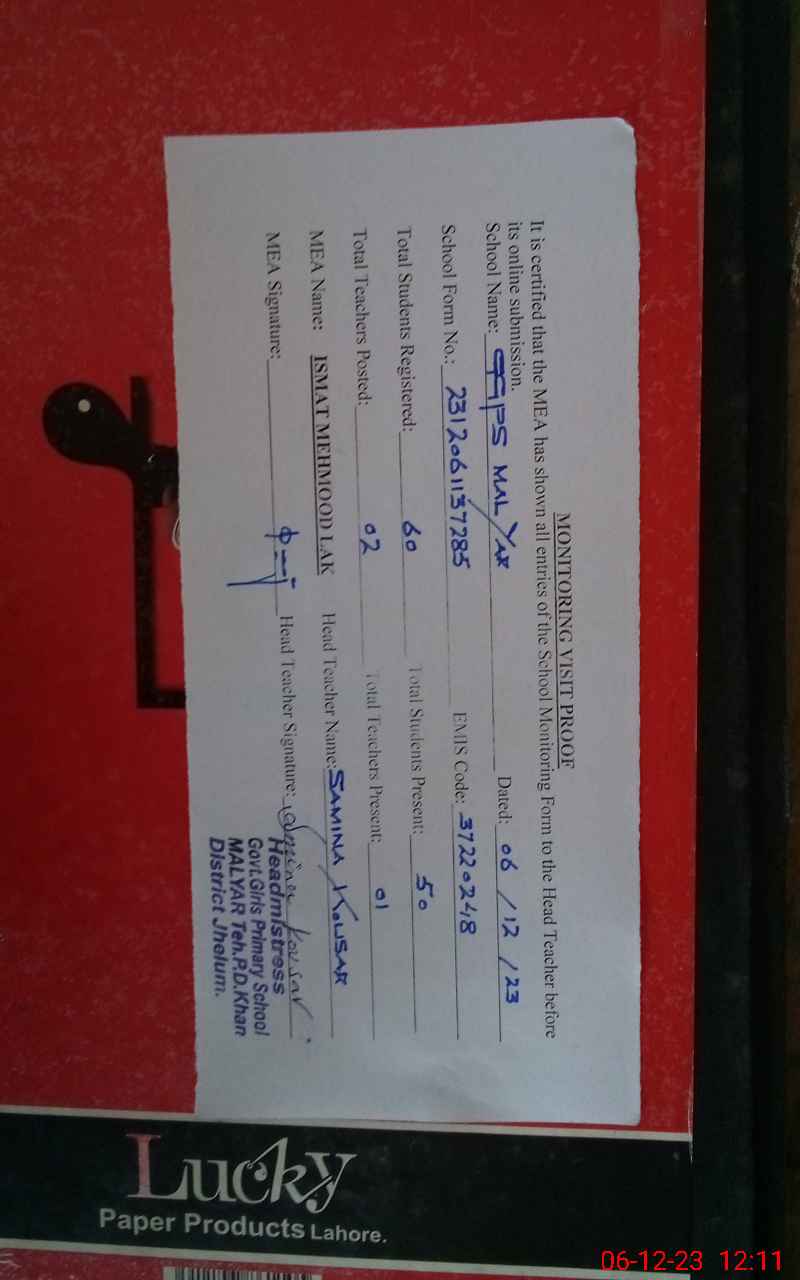 MONITORING VISIT PROOF
It is certified that the MEA has shown all entries of the School Monitoring Form to the Head Teacher before
its online submission.
School Name: GGPS MALYAR Dated: 06/12/23
School Form No.: 2312061137285 EMIS Code: 37220248
Total Students Registered: 60 Total Students Present: 50
Total Teachers Posted: 02 Total Teachers Present: 01
MEA Name: ISMAT MEHMOOD LAK Head Teacher Name: SAMINA KOUSAR
MEA Signature: Head Teacher Signature: Samina Kousar
Headmistress
Govt.Girls Primary School
MALYAR Teh.P.D.Khan
District Jhelum.
Lucky
Paper Products Lahore.
06-12-23 12:11